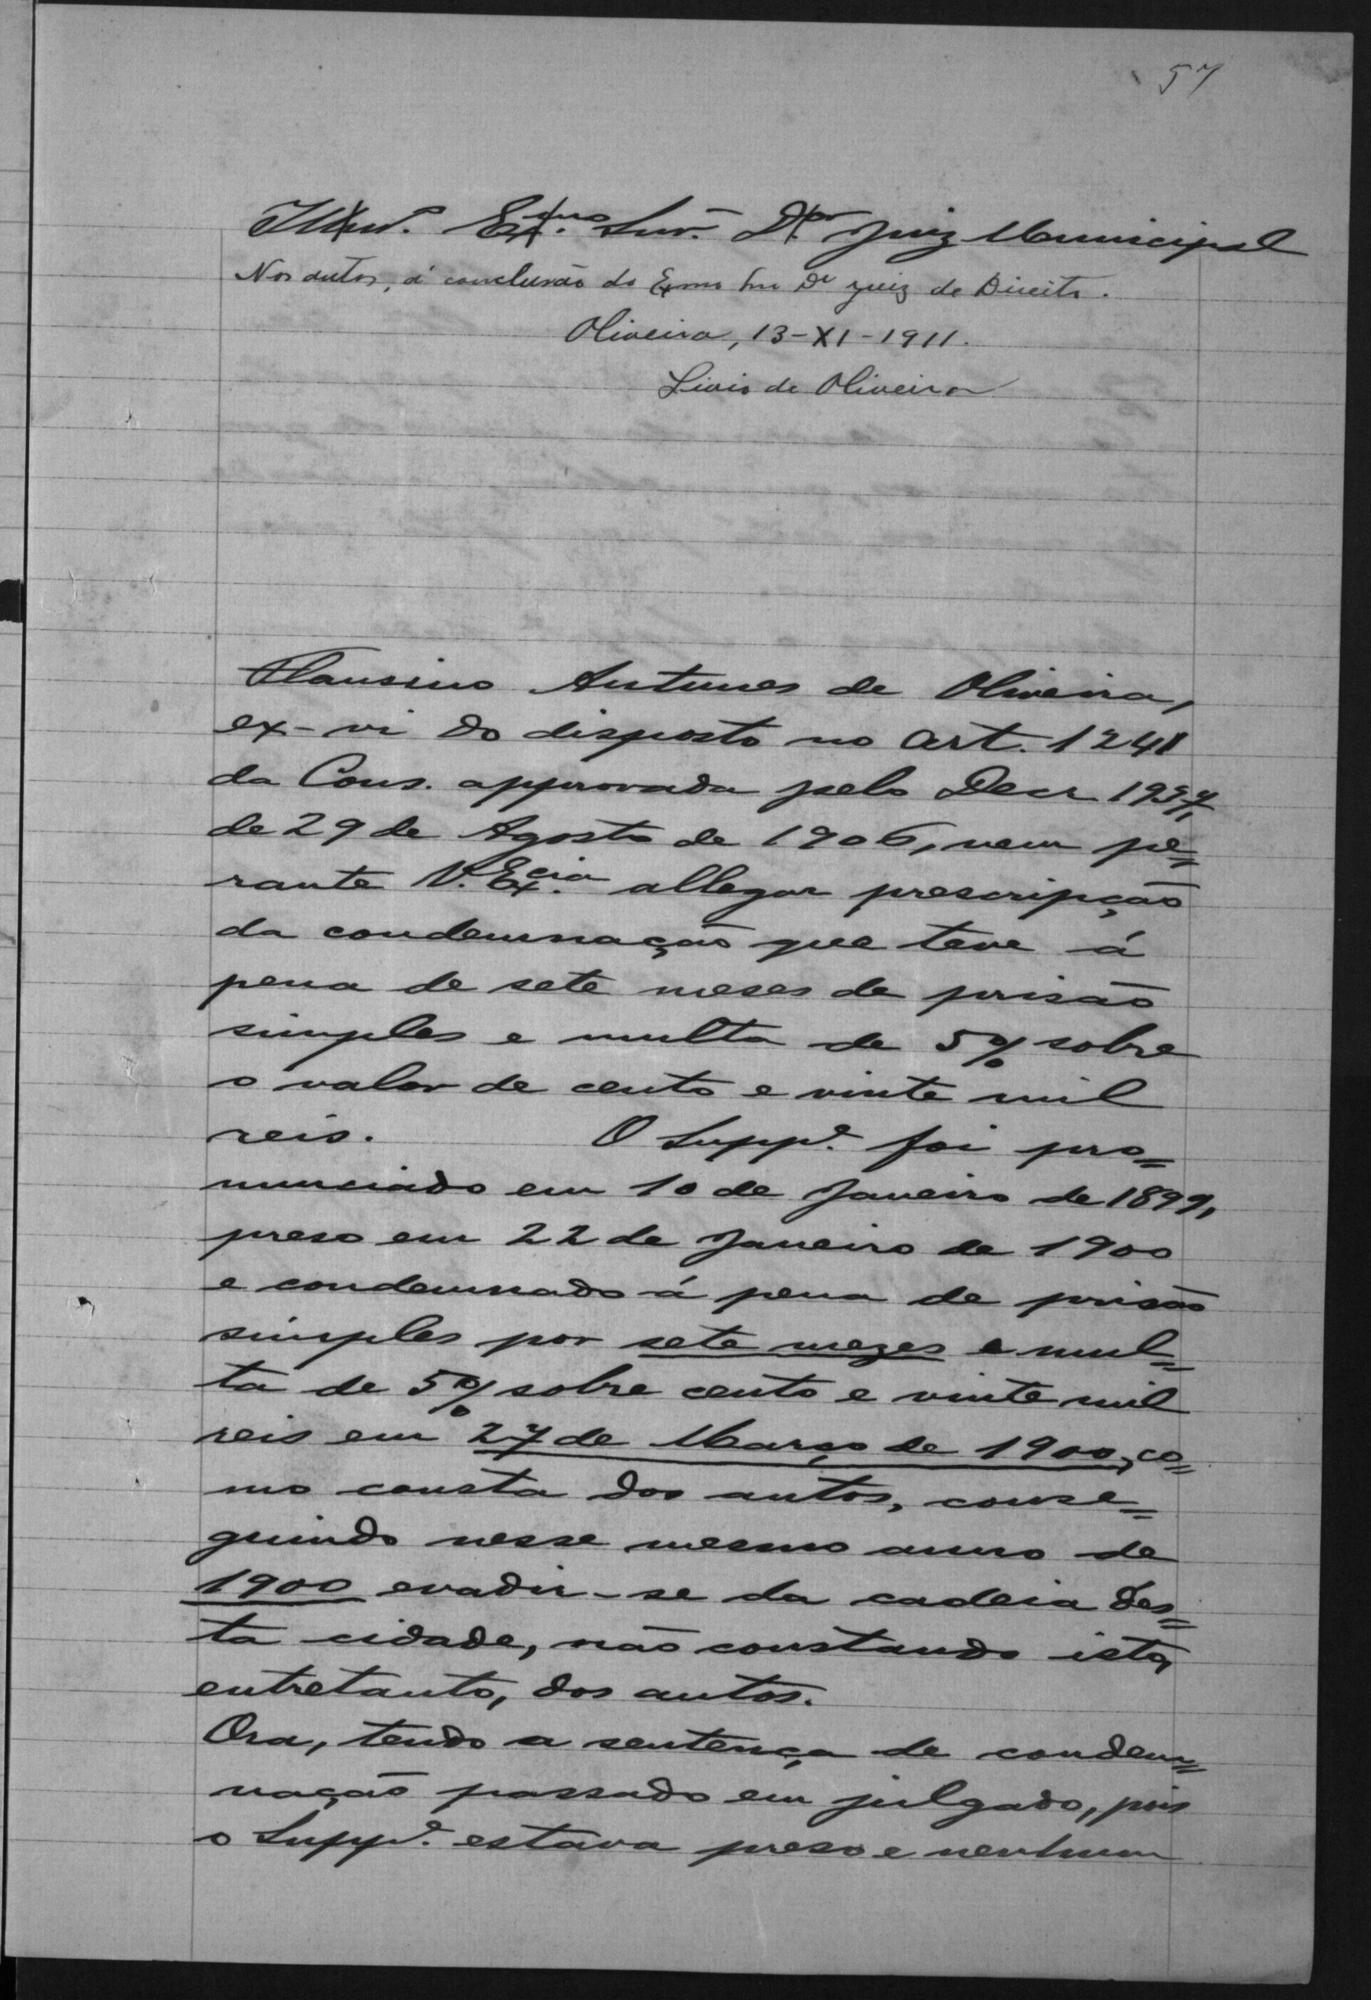 57
Illmo. Exmo. Snr. Dor Juiz Municipal
Nos autos, á conclusão do Exmo Snr Dr Juiz de Direito.
Oliveira, 13-XI-1911.
Livio de Oliveira
Flausino Antunes de Oliveira,
ex-vi do disposto no art. 1241
da Cons. approvada pelo Decr 1937,
de 29 de Agosto de 1906, vem pe=
rante V. Excia. allegar prescripção
da condemnação que teve á
pena de sete meses de prisão
simples e multa de 5% sobre
o valor de cento e vinte mil
reis. O Suppe. foi pro=
nunciado em 10 de Janeiro de 1899,
preso em 22 de Janeiro de 1900
e condemnado á pena de prisão
simples por sete mezes e mul=
ta de 5% sobre cento e vinte mil
reis em 27 de Março de 1900, co=
mo consta dos autos, conse=
guindo nesse mesmo anno de
1900 evadir-se da cadeia des=
ta cidade, não constando isto,
entretanto, dos autos.
Ora, tendo a sentença de condem=
nação passado em julgado, pois
o Suppe. estava preso e nenhum